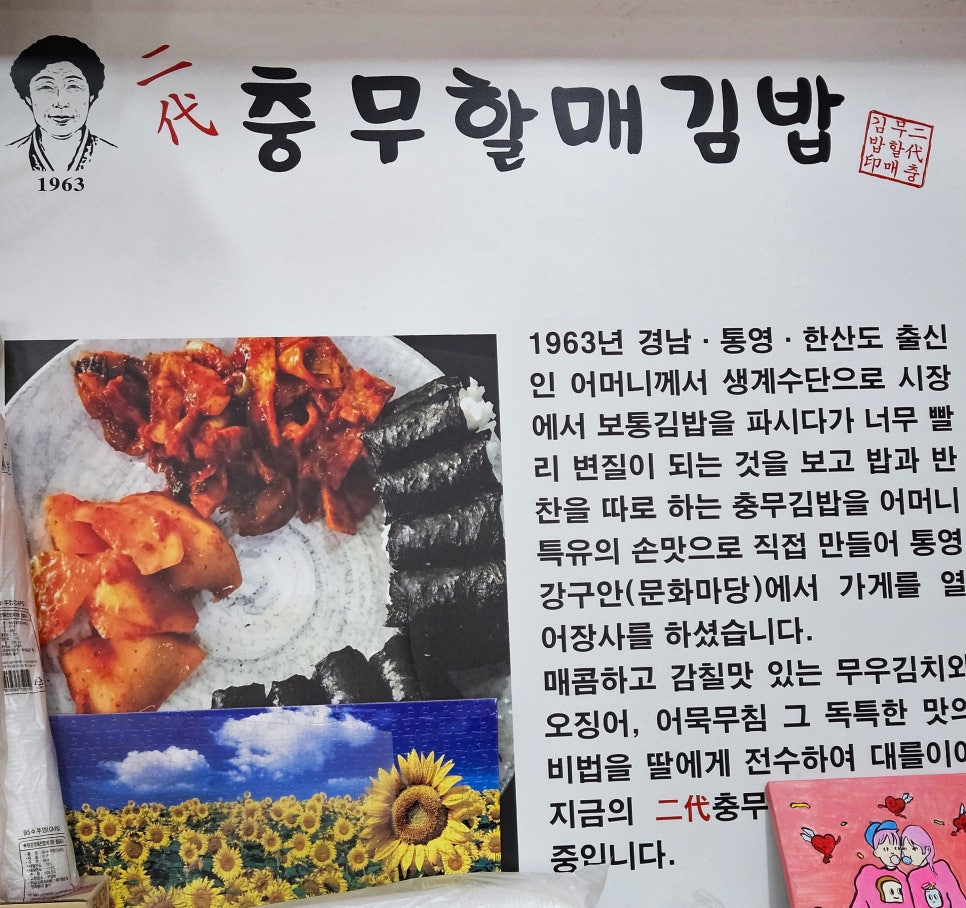 二代 충무할매김밥
1963
二代충
무할매
김밥印
1963년 경남·통영·한산도 출신
인 어머니께서 생계수단으로 시장
에서 보통김밥을 파시다가 너무 빨
리 변질이 되는 것을 보고 밥과 반
찬을 따로 하는 충무김밥을 어머니
특유의 손맛으로 직접 만들어 통영
강구안(문화마당)에서 가게를 열
어장사를 하셨습니다.
매콤하고 감칠맛 있는 무우김치와
오징어, 어묵무침 그 독특한 맛의
비법을 딸에게 전수하여 대를이어
지금의 二代충무
중입니다.